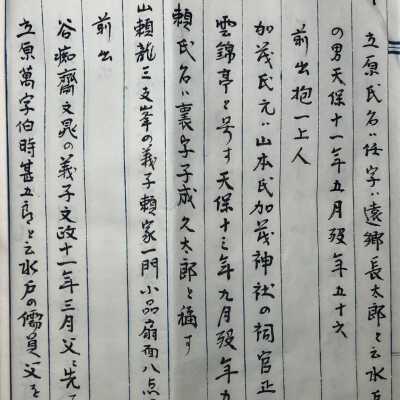 立原氏名ハ任字ハ遠郷長太郎と云水戸
の男天保十一年五月歿年五十六
前出抱一上人
加茂氏元ハ山本氏加茂神社の祠官正
雲錦亭と号す天保十三年九月歿年九
頼氏名ハ裏字子成久太郎と稱す
山頼龍三支峯の義子頼家一門小品扇面八点
前出
谷痴齋文晁の義子文政十一年三月父に先
立原萬字伯時甚五郎と云水戸の儒員父を